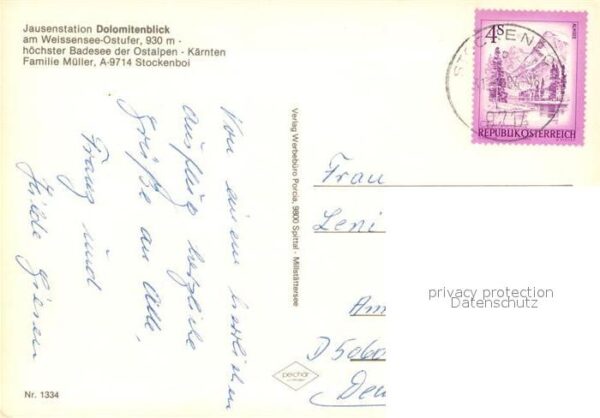 Jausenstation Dolomitenblick
am Weissensee-Ostufer, 930 m -
höchster Badesee der Ostalpen - Kärnten
Familie Müller, A-9714 Stockenboi
Von einem herrlichen
Ausflug herzliche
Grüße an Alle,
Franz und
Hilde Giesen
Nr. 1334
Verlag Werbebüro Porcia, 9800 Spittal - Millstättersee
pelchar
4S
REPUBLIK ÖSTERREICH
9714
Frau
Leni
Am
D 5060
Deu
privacy protection
Datenschutz